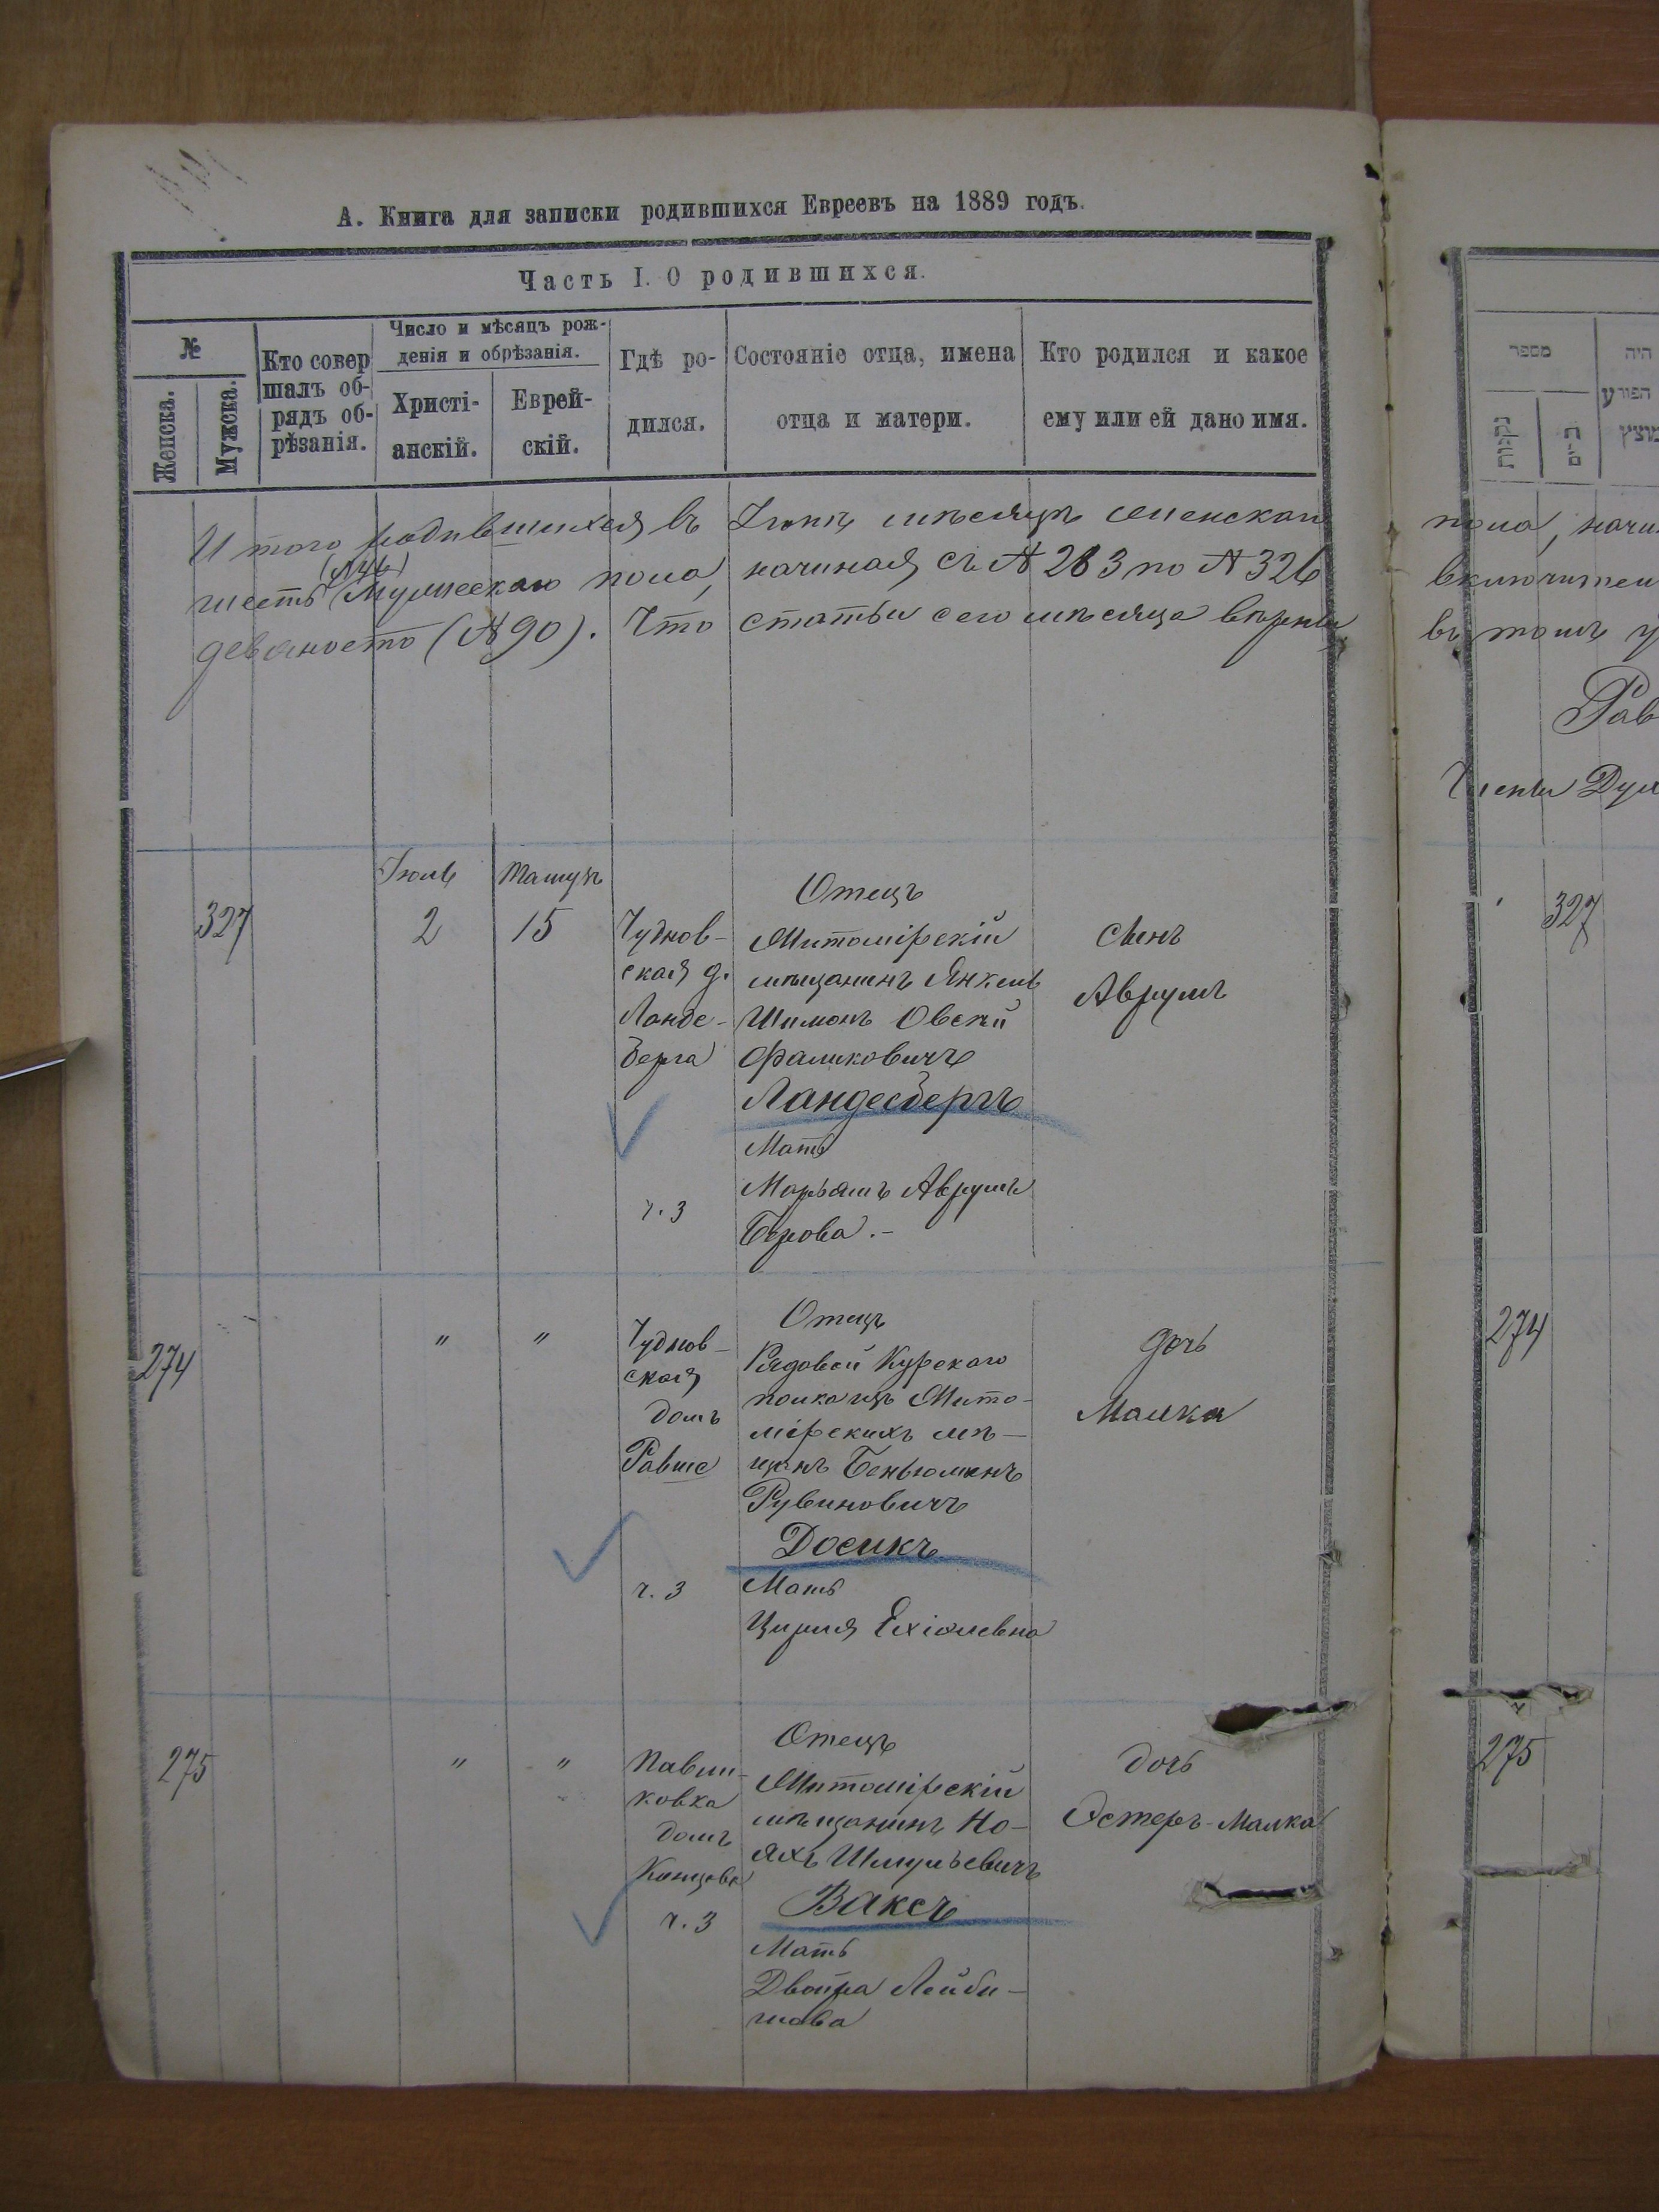 А. Книга для записки родившихся Евреевъ на 1889 годъ.
Часть I. О родившихся.
№
Женска.
Мужска.
Кто совер
шалъ об-
рядъ об-
рѣзанія.
Число и мѣсяцъ рож-
денія и обрѣзанія.
Христі-
анскій.
Еврей-
скій.
Гдѣ ро-
дился.
Состояніе отца, имена
отца и матери.
Кто родился и какое
ему или ей дано имя.
Итого родившихся въ Іюнѣ мѣсяцѣ женскаго
шесть Мужескаго пола, начиная съ № 283 по № 326
девяносто (№ 90). Что статьи сего мѣсяца вѣрны
327
Іюль
2
Тамузъ
15
Чуднов-
ская д.
Ланде-
берга
ч. 3
Отецъ
Житомірскій
мѣщанинъ Янкель
Шимонъ Овсей
Фаликовичъ
Ландесбергъ
Мать
Марьямъ Аврумъ
Берова.-
Сынъ
Аврумъ
274
"
"
Чуднов-
ская
домъ
Равше
ч. 3
Отецъ
Рядовой Курскаго
полка изъ Жито-
мірскихъ мѣ-
щанъ Беньюминъ
Рувиновичъ
Досикъ
Мать
Цирля Ехіолевна
дочь
Малка
275
"
"
Павли-
ковка
домъ
ч. 3
Отецъ
Житомірскій
мѣщанинъ Но-
яхъ Шмульевичъ
Ваксъ
Мать
Двойра Лейби-
шова
дочь
Эстеръ-Малка
מספר
נקבות
זכרים
היה
הפורע
מוצץ
пола, начи
включител
въ томъ у
Рав
Члены Дум
327
274
275